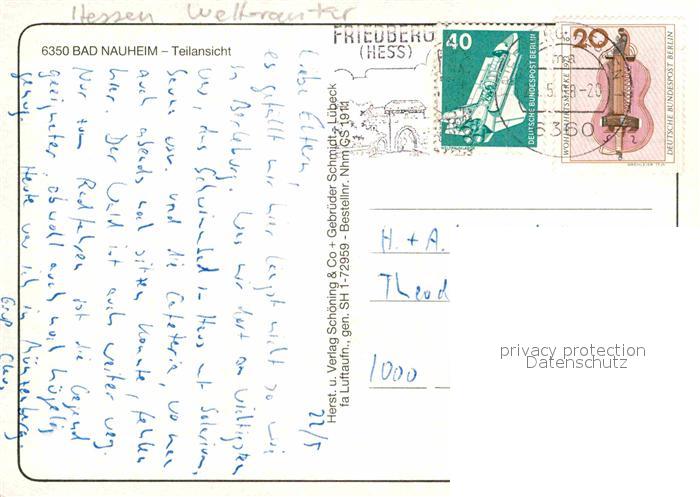 Hessen Weltraum
6350 BAD NAUHEIM – Teilansicht
FRIEDBERG
(HESS)
40
DEUTSCHE BUNDESPOST BERLIN
20
WOHLFAHRTSMARKE 1973
DEUTSCHE BUNDESPOST BERLIN
6360
22/5
Liebe Eltern,
es gefällt mir hier längst nicht so wie
in Berleburg. Was mir dort am wichtigsten
war, das Schwimmbad im Haus mit Solarium,
Sauna usw. und die Cafeteria, wo man
auch abends mal sitzen konnte, fehlen
hier. Der Wald ist auch weiter weg.
Nur zum Radfahren ist die Gegend
geeignet, obwohl auch noch hügelig
genug. Heute war ich in Münzenberg.
Herst. u. Verlag Schöning & Co + Gebrüder Schmidt - Lübeck
fa Luftaufn., gen. SH 1-72959 - Bestellnr. Nhm GS 1911
H. + A.
Theod
1000
privacy protection
Datenschutz